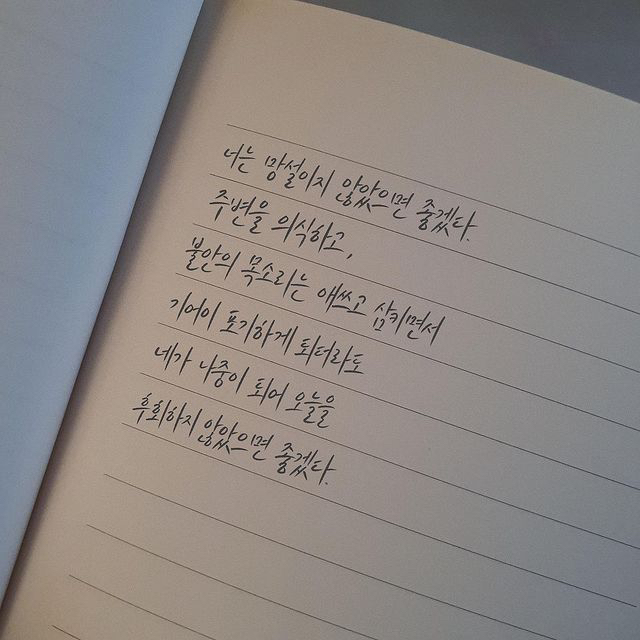 너는 망설이지 않았으면 좋겠다.
주변을 의식하고,
불안의 목소리는 애쓰고 삼키면서
기어이 포기하게 되더라도
네가 나중이 되어 오늘을
후회하지 않았으면 좋겠다.